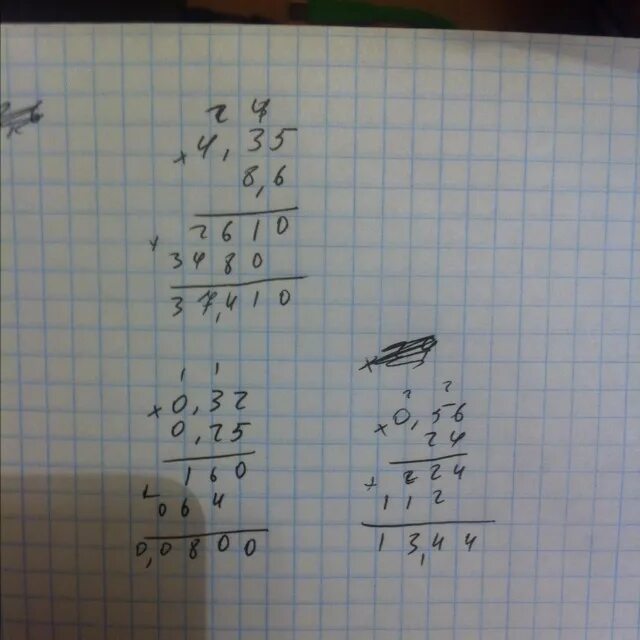 2 4
× 4,35
8,6
2610
+ 3480
37,410
1 1
× 0,32
0,25
160
+ 064
0,0800
2 2
× 0,56
24
+ 224
112
13,44